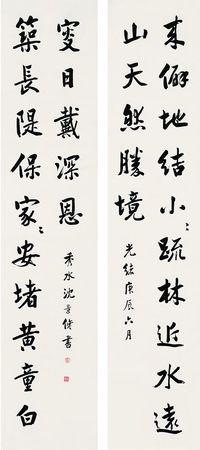 来僻地結小〻疏林近水遠
山天然勝境
光緒庚辰六月
築長隄保家〻安堵黄童白
叟日戴深恩
秀水沈景修書